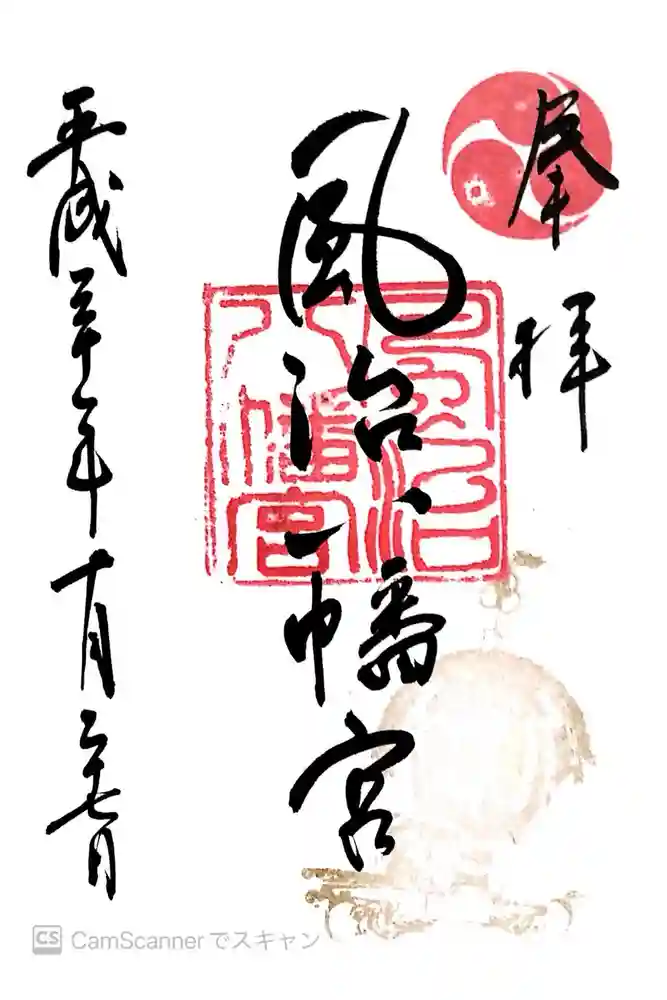 奉拝
風治八幡宮
風治
八幡宮
平成三十年十月二十七日
CS CamScannerでスキャン